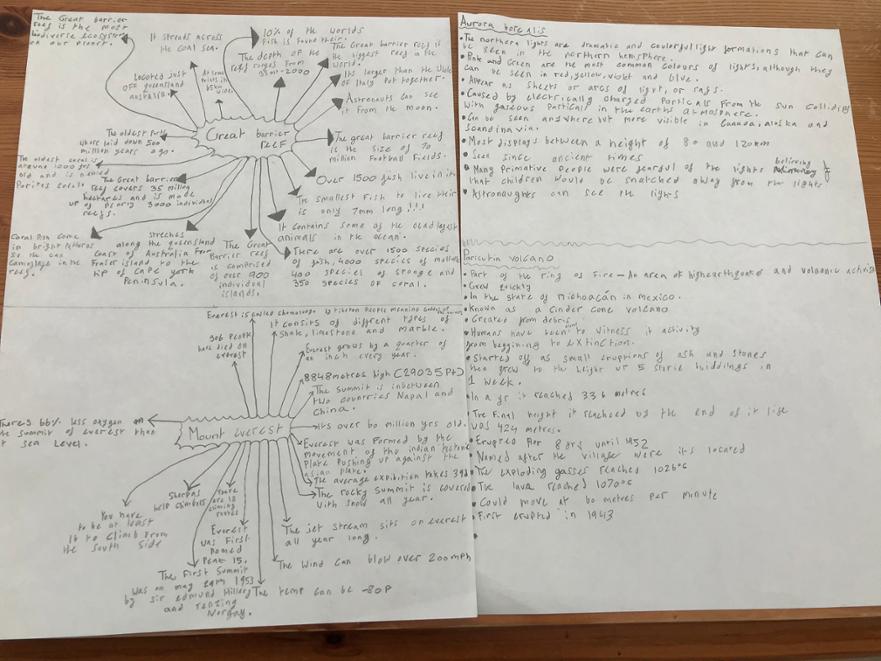 The Great barrier
reef is the most
biodiverse ecosystem
on our planet.
It streads across
the coal sea.
10% of the worlds
fish is found there.
The depth of the
reef ranges from
35m-2000
The Great barrier reef is
the biggest reef in the
world.
Its larger than the
of Italy put together.
Astronauts can see
it from the moon.
Located just
off queensland
Australia.
Great barrier
reef
The oldest
whose laid down 500
million years ago.
The great barrier reef
is the size of 70
million football fields.
The oldest coral is
around 1000 yrs
old and is named
Porites
The Great barrier
reef covers 35 million
hectares and is made
up of nearly 3000 individual
reefs.
Over 1500 fish live in it.
The smallest fish to live their
is only 7mm long!!!
It contains some of the deadliest
animals in the ocean.
Coral
in bright
so the can
camoflage in the
reef.
streches
along the queensland
coast of Australia from
Fraser island to the
tip of cape york
Peninsula.
The Great
Barrier reef
is comprised
of over 900
individual
islands.
There are over 1500 species
of fish, 4000 species of mollusc
400 species of sponge and
350 species of coral.
Everest is called chomolungma by tibetan people meaning
It consists of diffrent types of
Shale, limestone and marble.
306 people
have died on
everest
Everest grows by a quarter of
an inch every year.
8848 metres high (29035 Ft)
The summit is inbetween
two countries Napal and
China.
Theres 66% less oxygen on
the summit of everest than
at sea level.
Mount everest
It's over 60 million yrs old.
Everest was formed by the
movement of the indian tectonic
plate pushing up against the
asian plate.
The average expibition takes 39d
The rocky summit is covered
with snow all year.
You have
to be at least
16 to climb from
the south side
Sherpas
help climbers
There
are 18
climing
routes
Everest
was first
named
Peak 15.
The jet stream sits on everest
all year long.
The wind can blow over 200mph
The First summit
was on may 29th 1953
by sir edmund Hillary
and tenzing
Norgay.
The temp can be -80F
Aurora borealis
• The northern lights are dramatic and coulorful light formations that can
be seen in the northern hemisphere.
• Pink and Green are the most common colours of lights, although they
can be seen in red, yellow, violet and blue.
• Appear as sheets or arcs of light, or rays.
• Caused by electrically charged particals from the sun colliding
with gaseous particals in the earths atmosphere.
• Can be seen anywhere but more visible in Canada, alaska and
scandinavia.
• Most displays between a height of 80 and 120km
• Seen since ancient times
• Many primative people were fearful of the lights believing
that children would be snatched away from the lights
• Astronaughts can see the lights
Paricutin volcano
• Part of the ring of fire - An area of high earthquake and volcanic activity
• Grew quickly
• In the state of Michoacán in mexico.
• Known as a cinder cone volcano
• Created from debris
• Humans have been to witness it activity
from beggining to extinction.
• Started off as small eruptions of ash and stones
then grew to the height of 5 storie buiddings in
1 week.
• In a yr it reached 336 metres
• The final height it reached by the end of it life
was 424 metres.
• Erupted for 8 yrs until 1952
• Named after the village were its located
• The exploding gasses reached 1026°c
• The lava reached 1070°c
• Could move at 60 metres per minute
• First erupted in 1943